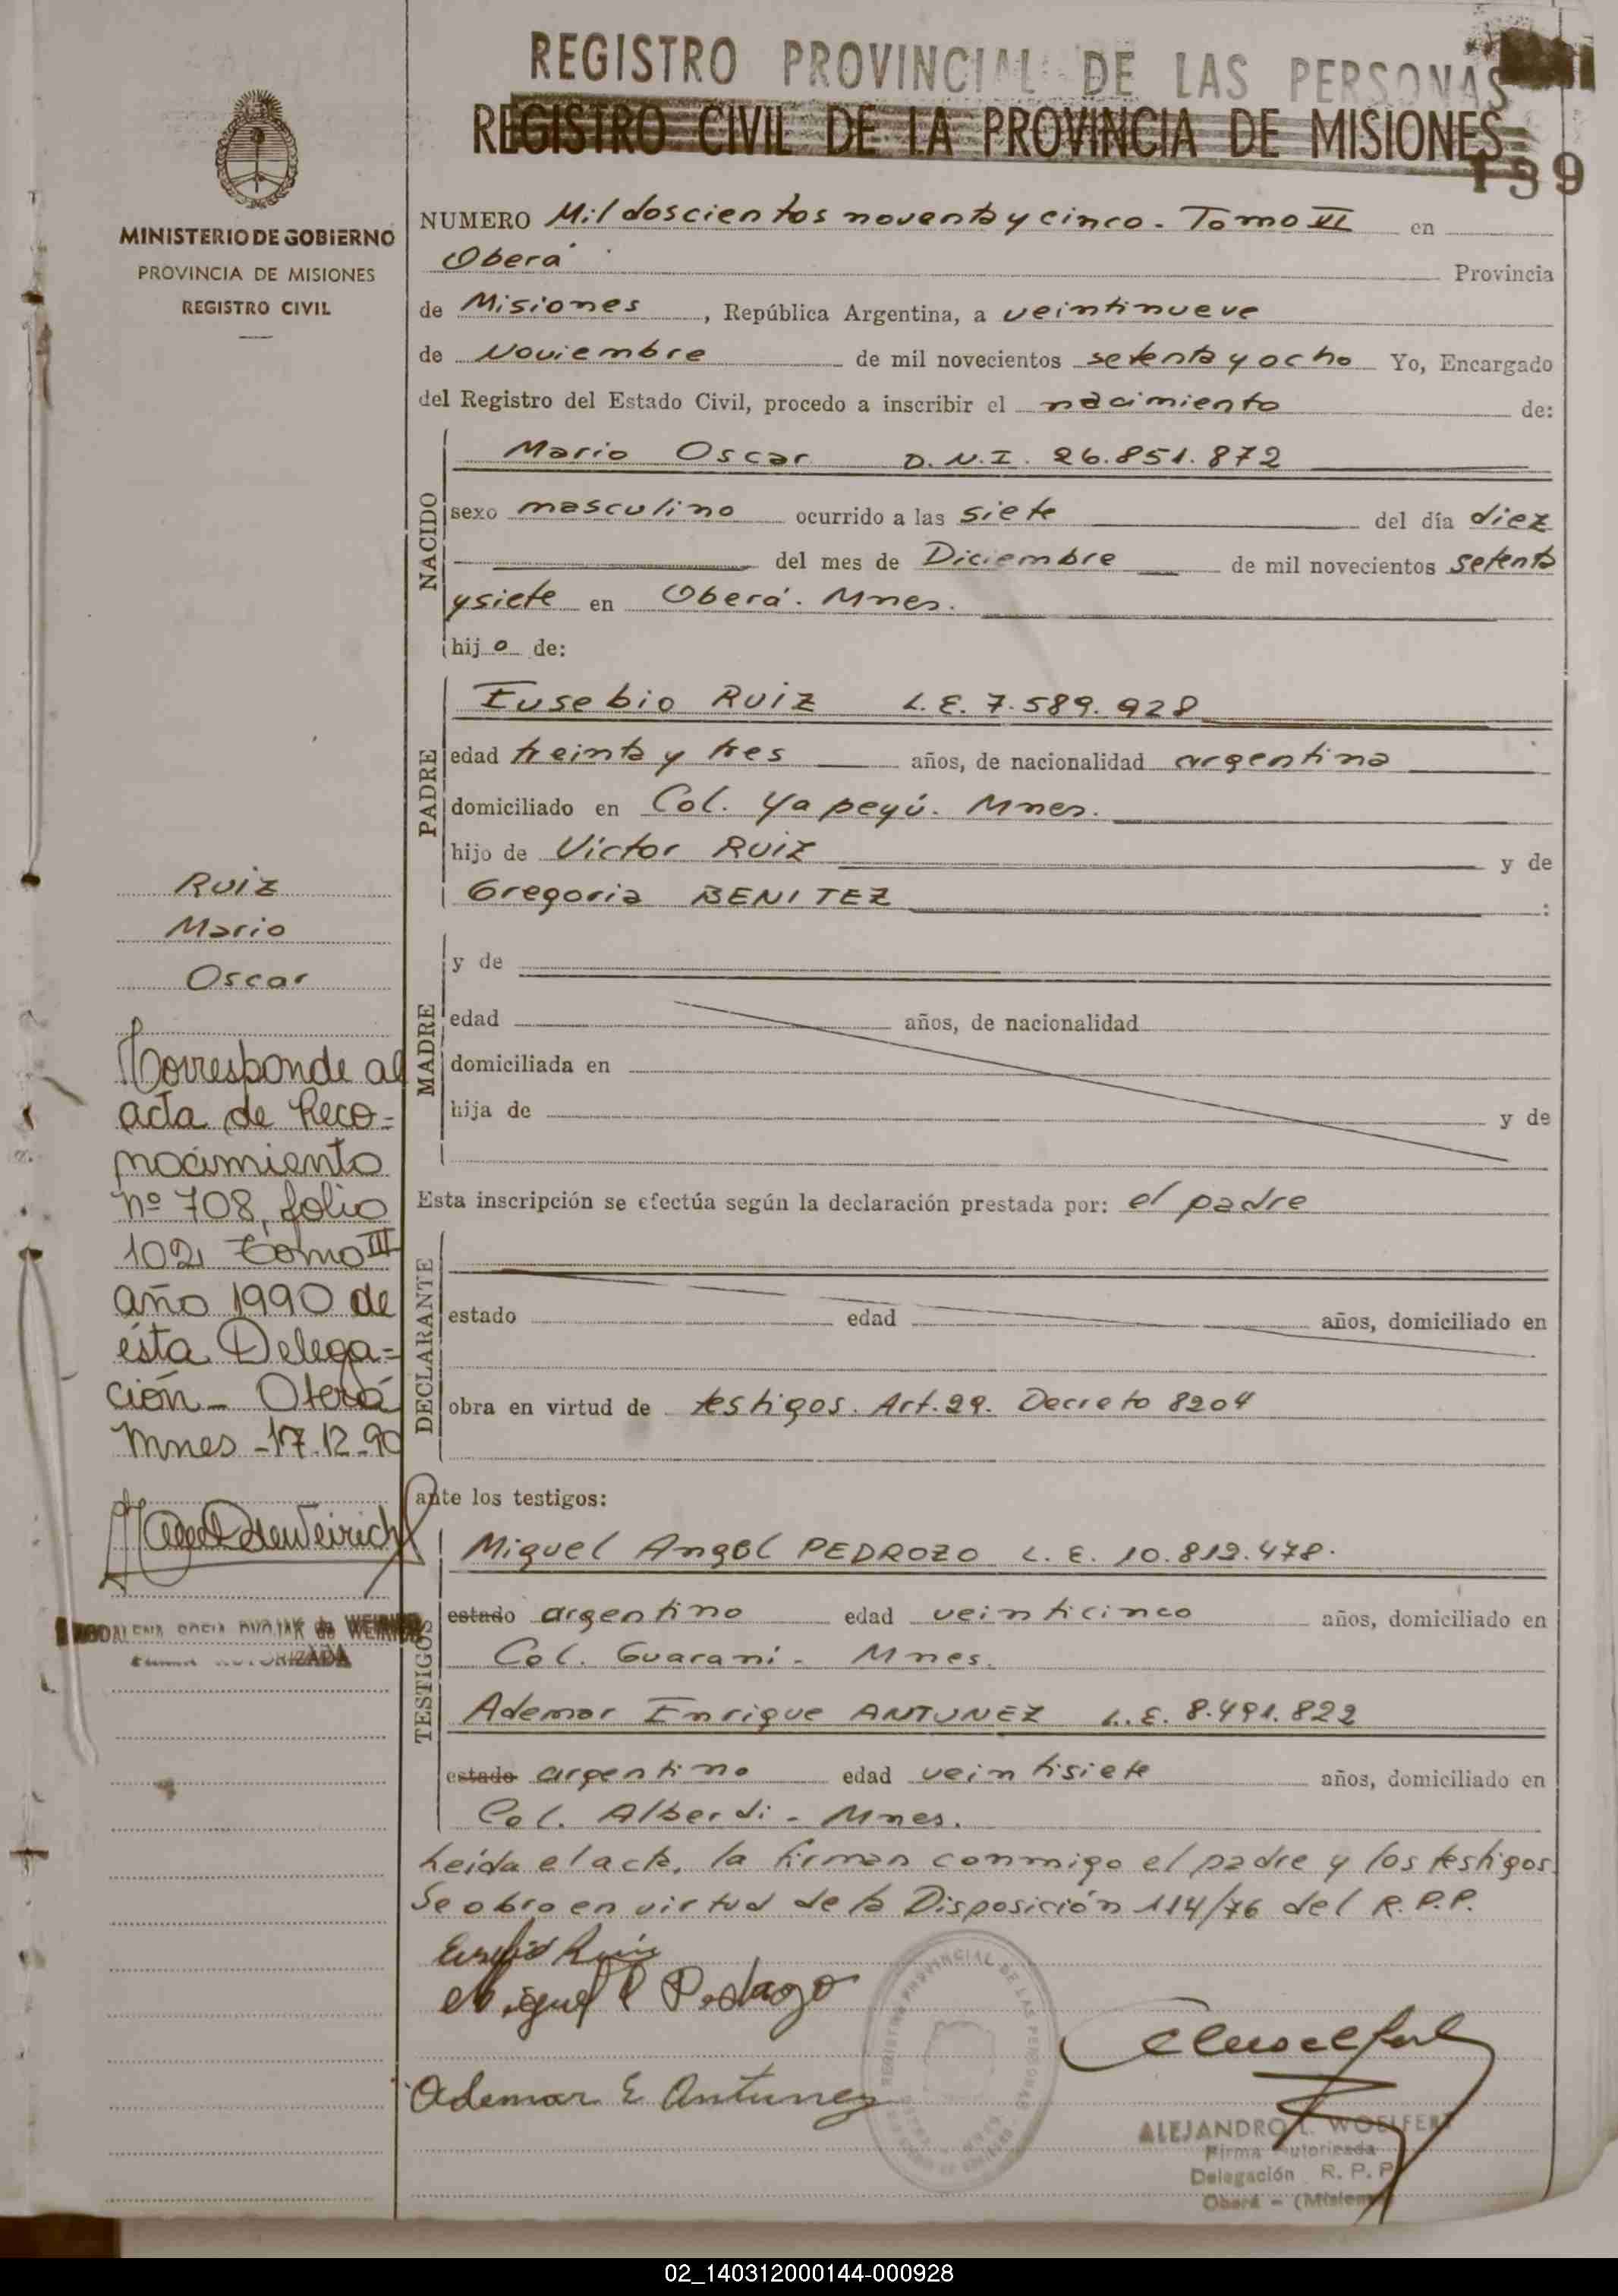 REGISTRO PROVINCIAL DE LAS PERSONAS
REGISTRO CIVIL DE LA PROVINCIA DE MISIONES
139
MINISTERIO DE GOBIERNO
PROVINCIA DE MISIONES
REGISTRO CIVIL
NUMERO Mil doscientos noventa y cinco - Tomo VI en
Oberá Provincia
de Misiones, República Argentina, a veintinueve
de Noviembre de mil novecientos setenta y ocho Yo, Encargado
del Registro del Estado Civil, procedo a inscribir el nacimiento de:
NACIDO
Mario Oscar D.N.I. 26.851.872
sexo masculino ocurrido a las siete del día diez
del mes de Diciembre de mil novecientos setenta
y siete en Oberá. Mnes.
hijo de:
PADRE
Eusebio RUIZ L.E. 7.589.928
edad treinta y tres años, de nacionalidad argentina
domiciliado en Col. Yapeyú. Mnes.
hijo de Victor RUIZ y de
Gregoria BENITEZ :
MADRE
y de
edad años, de nacionalidad
domiciliada en
hija de y de
Esta inscripción se efectúa según la declaración prestada por: el padre
DECLARANTE
estado edad años, domiciliado en
obra en virtud de testigos. Art. 29. Decreto 8204
ante los testigos:
TESTIGOS
Miguel Angel PEDROZO L.E. 10.819.478.
estado argentino edad veinticinco años, domiciliado en
Col. Guarani - Mnes.
Ademar Enrique ANTUNEZ L.E. 8.491.822
estado argentino edad veintisiete años, domiciliado en
Col. Alberdi - Mnes.
Leída el acta, la firman conmigo el padre y los testigos.
Se obro en virtud de la Disposición 114/76 del R.P.P.
Eusebio Ruiz
Miguel A Pedrozo
Ademar E Antunez
REGISTRO PROVINCIAL DE LAS PERSONAS
ALEJANDRO L. WOELFERT
Firma Autorizada
Delegación R. P. P.
Oberá - (Misiones)
Ruiz
Mario
Oscar
Corresponde al
acta de Reco-
nocimiento
nº 708, folio
102, Tomo III
año 1990 de
ésta Delega=
ción - Oberá
Mnes - 17.12.90
MAGDALENA SOFIA DVOJAK de WEIRICH
FIRMA AUTORIZADA
02_140312000144-000928